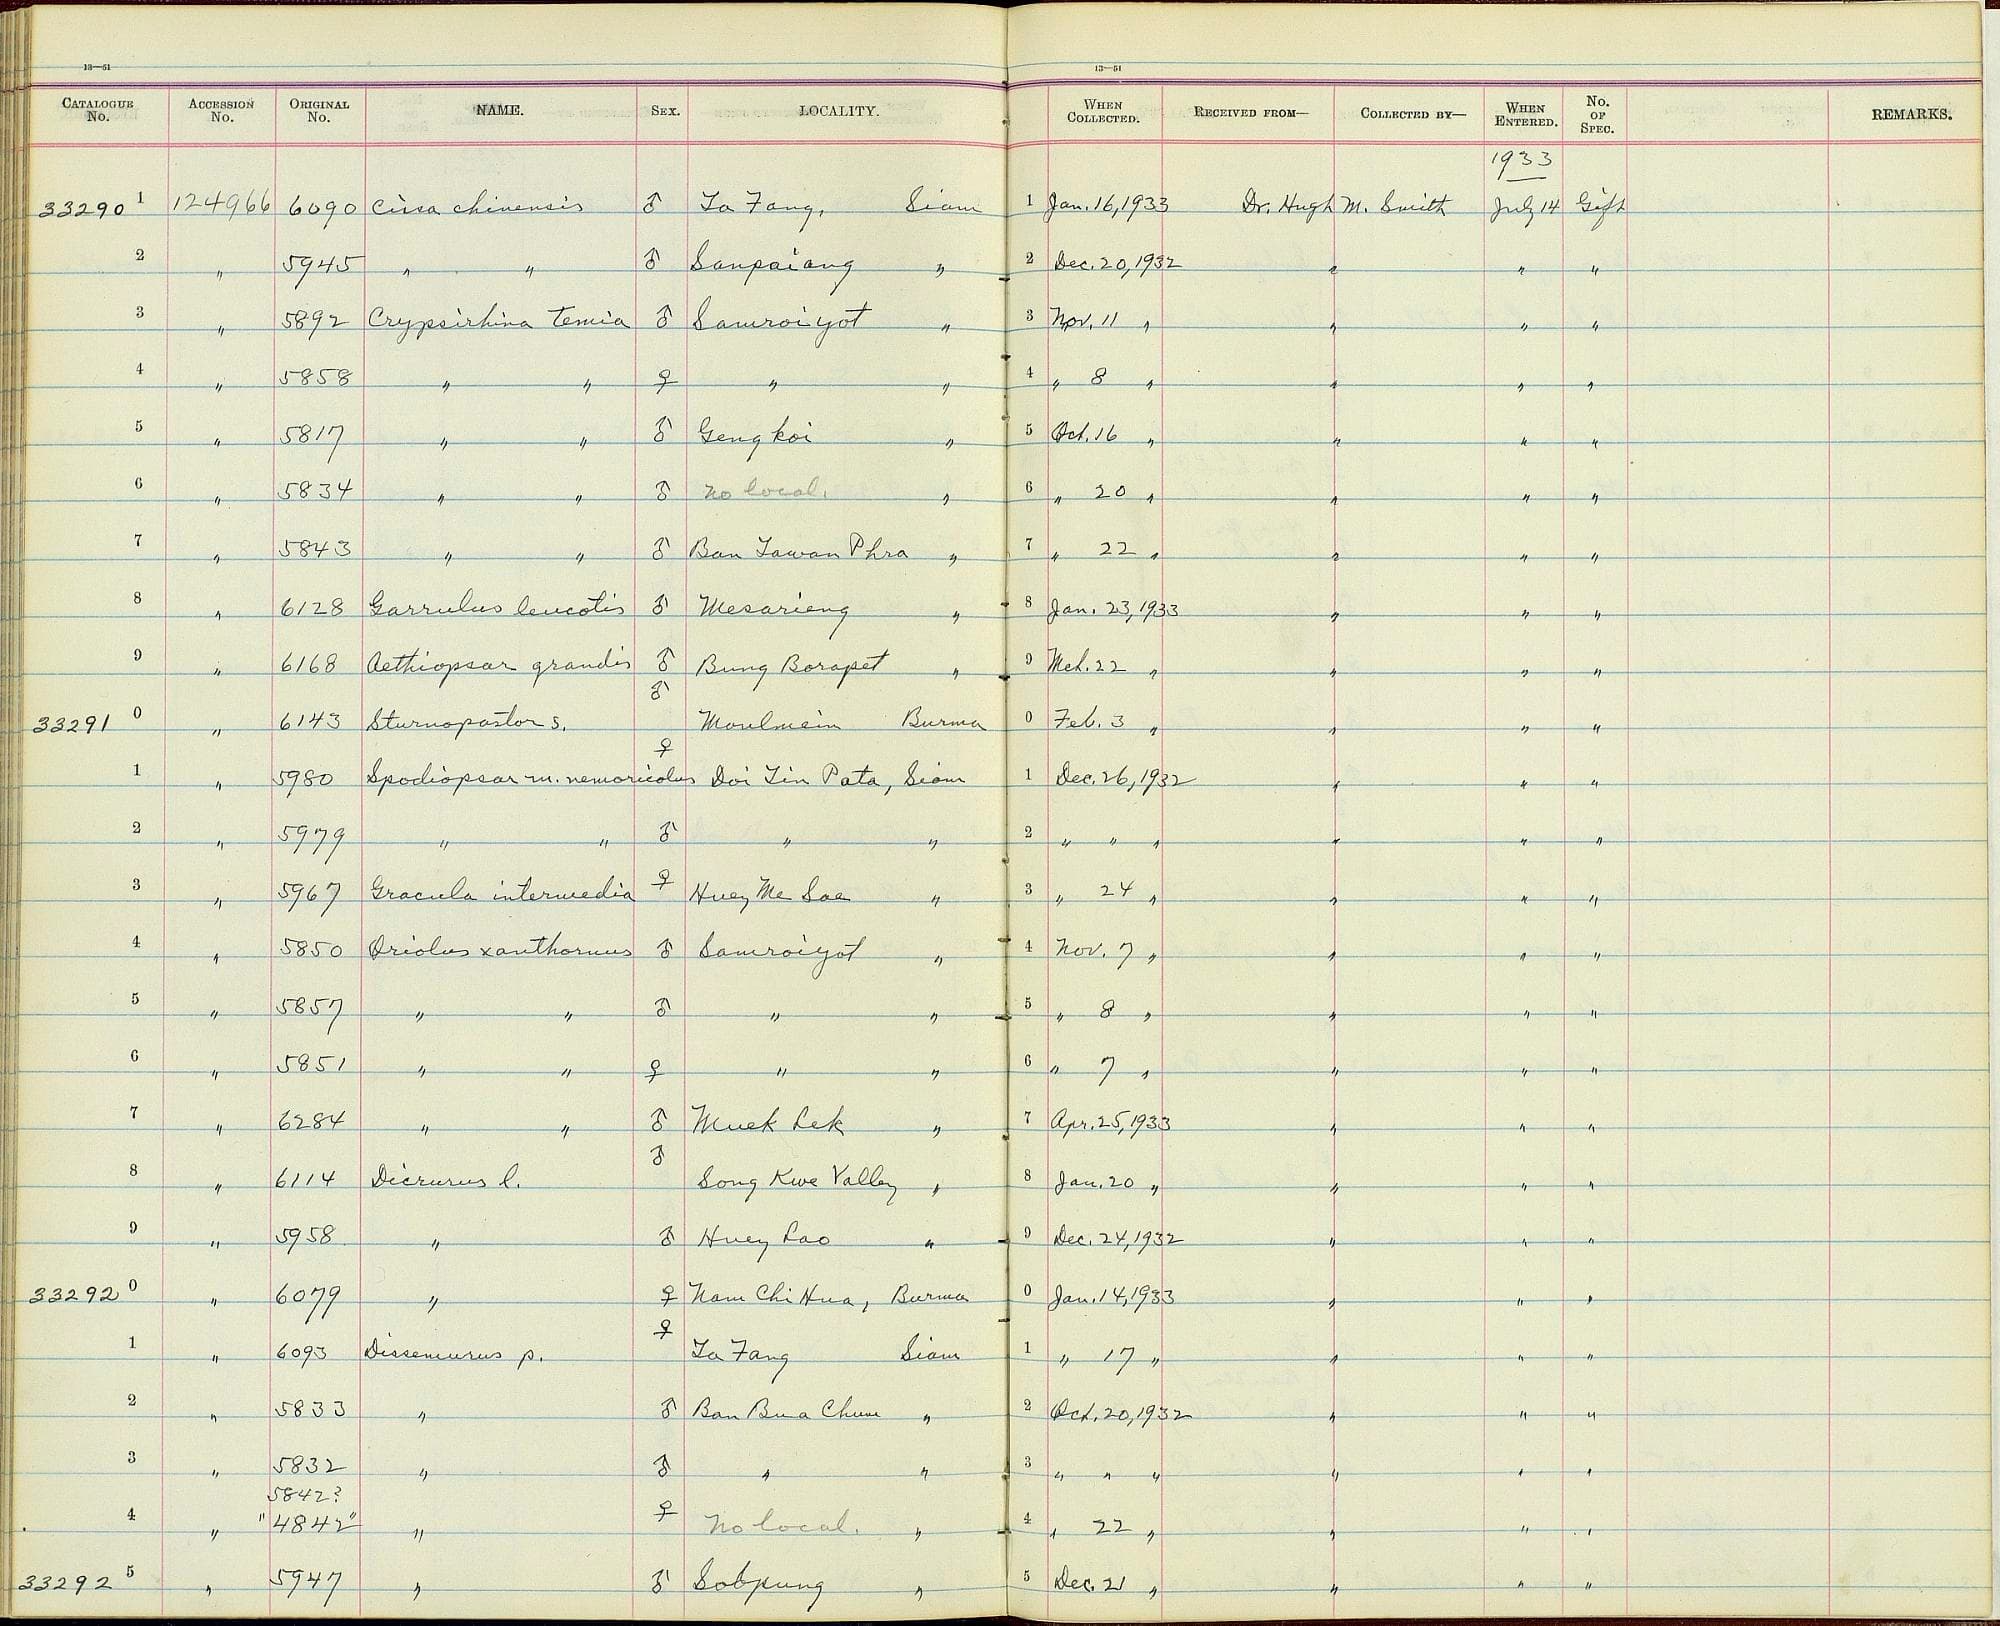 13—51 13—51
CATALOGUE No. ACCESSION No. ORIGINAL No. NAME. SEX. LOCALITY. WHEN COLLECTED. RECEIVED FROM— COLLECTED BY— WHEN ENTERED. No. OF SPEC. REMARKS.
1933
33290 1 124966 6090 Cissa chinensis ♂ Ta Fang, Siam 1 Jan. 16, 1933 Dr. Hugh M. Smith July 14 Gift
2 " 5945 " " ♂ Sanpaiang " 2 Dec. 20, 1932 " " "
3 " 5892 Crypsirhina temia ♂ Samroiyot " 3 Nov. 11 " " " "
4 " 5858 " " ♀ " " 4 " 8 " " " "
5 " 5817 " " ♂ Gengkoi " 5 Oct. 16 " " " "
6 " 5834 " " ♂ no local. " 6 " 20 " " " "
7 " 5843 " " ♂ Ban Tawan Phra " 7 " 22 " " " "
8 " 6128 Garrulus leucotis ♂ Mesarieng " 8 Jan. 23, 1933 " " "
9 " 6168 Aethiopsar grandis ♂ Bung Borapet " 9 Mch. 22 " " " "
33291 0 " 6143 Sturnopastor s. ♂ Moulmein Burma 0 Feb. 3 " " " "
1 " 5980 Spodiopsar m. nemoricolus ♀ Doi Tin Pata, Siam 1 Dec. 26, 1932 " " "
2 " 5979 " " ♂ " " 2 " " " " " "
3 " 5967 Gracula intermedia ♀ Huey Me Sae " 3 " 24 " " " "
4 " 5850 Oriolus xanthornus ♂ Samroiyot " 4 Nov. 7 " " " "
5 " 5857 " " ♂ " " 5 " 8 " " " "
6 " 5851 " " ♀ " " 6 " 7 " " " "
7 " 6284 " " ♂ Muek Lek " 7 Apr. 25, 1933 " " "
8 " 6114 Dicrurus l. ♂ Song Kwe Valley " 8 Jan. 20 " " " "
9 " 5958 " ♂ Huey Lao " 9 Dec. 24, 1932 " " "
33292 0 " 6079 " ♀ Nam Chi Hua, Burma 0 Jan. 14, 1933 " " "
1 " 6093 Dissemurus p. ♀ Ta Fang Siam 1 " 17 " " " "
2 " 5833 " ♂ Ban Bua Chum " 2 Oct. 20, 1932 " " "
3 " 5832 " ♂ " " 3 " " " " " "
5842?
4 " "4842" " ♀ No local. " 4 " 22 " " " "
33292 5 " 5947 " ♂ Sobpung " 5 Dec. 21 " " " "